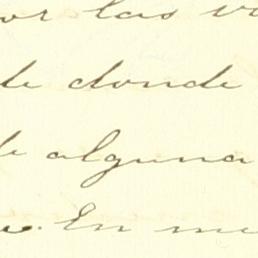 por las
de donde
de alguna
En me